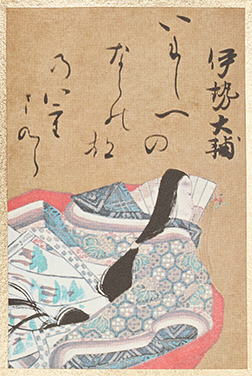 伊勢大輔
いにしへの
ならの都
乃八重
さくら